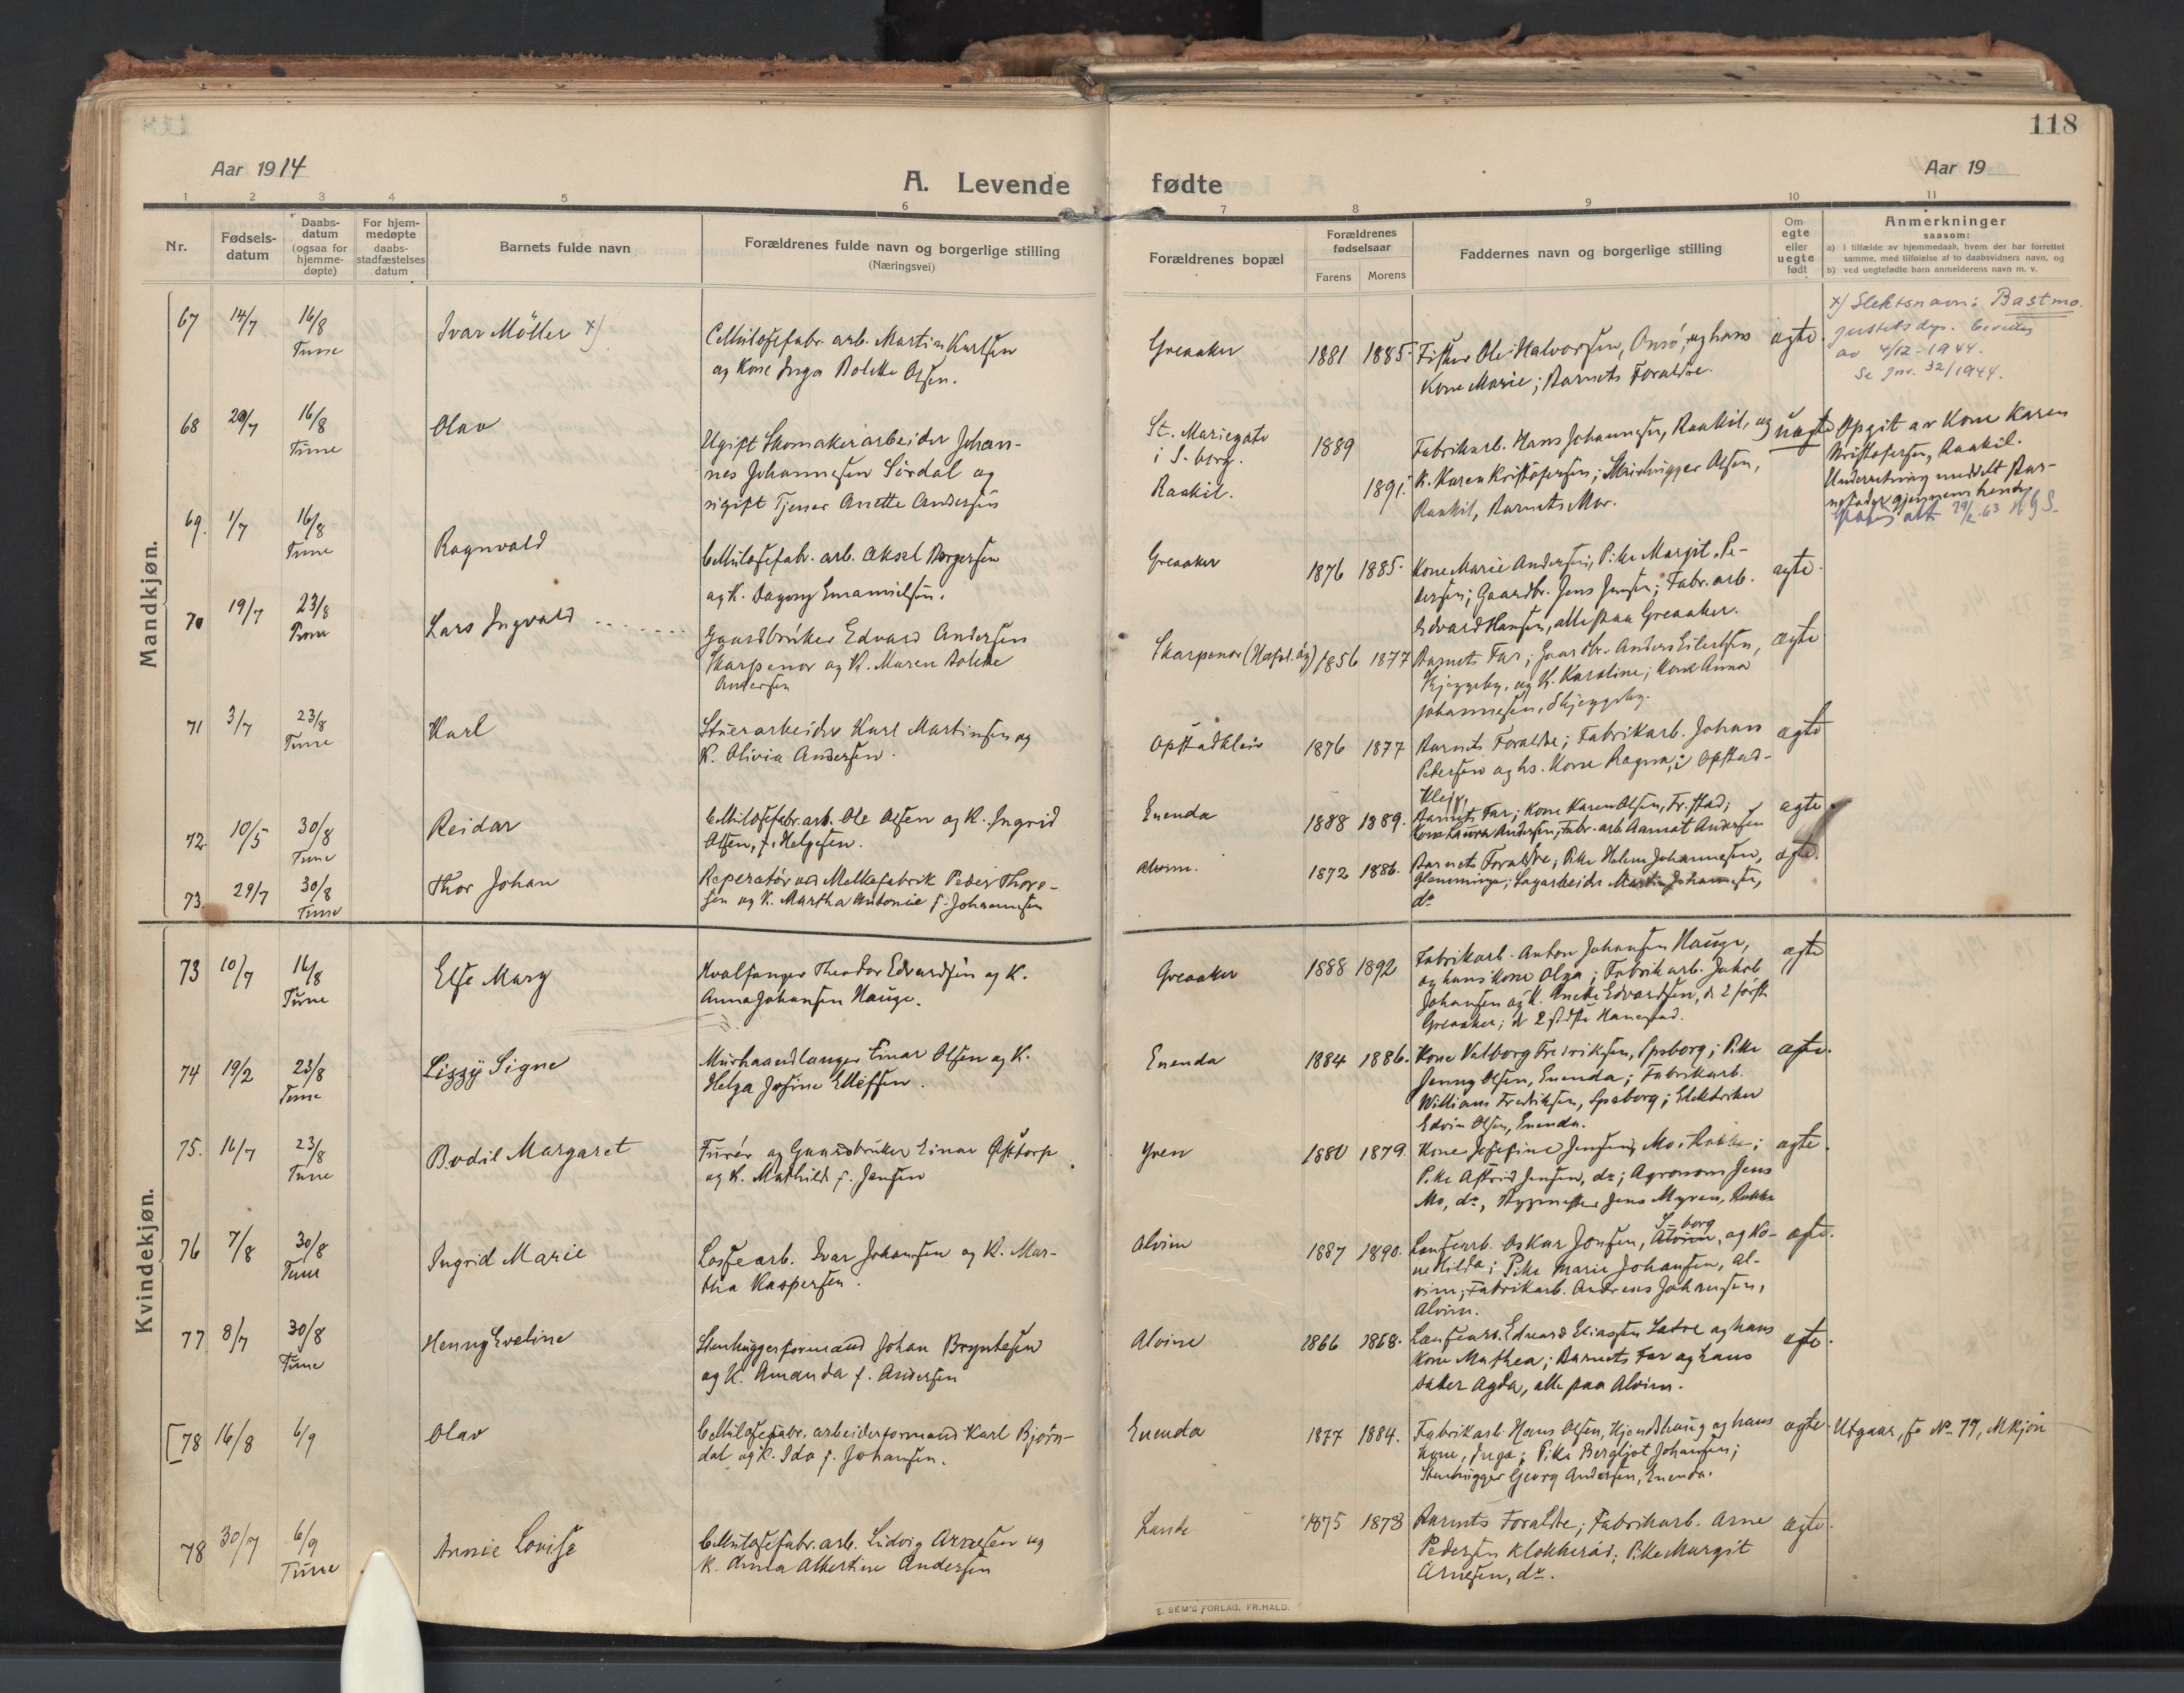 118
Aar 1914
Aar 19
A. Levende fødte
1 2 3 4 5 6 7 8 9 10 11
Nr.
Fødsels-
datum
Daabs-
datum
(ogsaa for
hjemme-
døpte)
For hjem-
medøpte
daabs-
stadfæstelses
datum
Barnets fulde navn
Forældrenes fulde navn og borgerlige stilling
(Næringsvei)
Forældrenes bopæl
Forældrenes
fødselsaar
Farens Morens
Faddernes navn og borgerlige stilling
Om
egte
eller
uegte
født
Anmerkninger
saasom:
a) i tilfælde av hjemmedaab, hvem der har forrettet
samme, med tilføielse af to daabsvidners navn, og
b) ved uegtefødte barn anmelderens navn m. v.
Mandkjøn.
67 14/7 16/8
Tune
Ivar Möller x)
Cellulosefabr. arb. Martin Karlsen
og Kone Inga Bolette Olsen.
Greaaker
1881 1885.
Fisker Ole Halvorsen, Onsö, og hans
Kone Marie; Barnets Forældre.
ægte.
x) Slektsnavn: Bastmo.
Justetsdep. bevilling
av 4/12-1944.
Se jnr. 32/1944.
68 29/7 16/8
Tune
Olav
Ugift Skomakerarbeider Johan-
nes Johannesen Sørdal og
ugift Tjener Anette Andersen
St. Mariegate
i S-borg.
Raakil.
1889
1891.
Fabrikarb. Hans Johannesen, Raakil, og
K. Karen Kristofersen; Murhugger Olsen,
Raakil, Barnets Mor.
uægte
Opgit av Kone Karen
Kristofersen, Raakil.
Underretning meddelt Bar-
nefader gjennem hende.
69. 1/7 16/8
Tune
Ragnvald
Cellulosefabr. arb. Aksel Borgersen
og K. Dagny Emanuelsen.
Greaaker
1876 1885.
Kone Marie Andersen; Pike Margit Pe-
dersen; Gaardbr. Jens Jensen; Fabr. arb.
Edvard Hansen, alle paa Greaaker.
ægte.
70 19/7 23/8
Tune
Lars Ingvald
Gaardbruker Edvard Andersen
Skarpenor og K. Maren Bolette
Andersen
Skarpenor (Hafsl. og)
1856 1877
Barnets Far; Gaardbr. Anders Eilertsen,
Kjeggeby, og K. Karoline; Kone Anna
Johannesen, Skjeggeby.
ægte
71 3/7 23/8
Tune
Karl
Stuerarbeider Karl Martinsen og
K. Olivia Andersen.
Opstadkleiv
1876 1877
Barnets Forældre; Fabrikarb. Johan
Petersen og hs. Kone Ragna; i Opstad-
kleiv.
ægte
72. 10/5 30/8
Tune
Reidar
Cellulosefabr. arb. Ole Olsen og K. Ingrid
Olsen, f. Helgesen.
Enenda
1888 1889.
Barnets Far; Kone Karen Olsen, Fr.stad;
Kone Laura Andersen; Fabr. arb. Aamot Andersen
ægte.
73. 29/7 30/8
Tune
Thor Johan
Reperatør ved Melkefabrik Peder Thore-
sen og K. Martha Antonie f. Johannesen
Alvim.
1872 1886.
Barnets Forældre; Pike Helene Johannesen,
Glemminge; Sagarbeider Martin Johannesen,
do
ægte.
Kvindekjøn.
73 10/7 16/8
Tune
Else Mary
Hvalfanger Theodor Edvardsen og K.
Anna Johansen Hauge.
Greaaker
1888 1892
Fabrikarb. Anton Johansen Hauge,
og hans kone Olga; Fabrikarb. Jakob
Johansen og K. Anette Edvardsen, de 2 første
Greaaker; de 2 sidste Hanestad.
ægte
74 19/2 23/8
Tune
Lizzy Signe
Murhaandlanger Einar Olsen og K.
Helga Josefine Ellefsen.
Enenda
1884 1886.
Kone Valborg Fredriksen, Spsborg; Pike
Jenny Olsen, Enenda; Fabrikarb.
William Fredriksen, Spsborg; Elektriker
Edvin Olsen, Enenda.
ægte.
75. 16/7 23/8
Tune
Bodil Margaret
Furér og Gaardbruker Einar Opstorp
og K. Mathilde f. Jensen
Yven
1880 1879.
Kone Josefine Jensen, Mo i Rakke;
Pike Astrid Jensen, do; Agronom Jens
Mo, do, Jens Myren, Rakke
ægte.
76 7/8 30/8
Tune
Ingrid Marie
Lossearb. Ivar Johansen og K. Mar-
tha Kaspersen.
Alvim
1887 1890.
Lænsearb. Oskar Jonsen, S-borg, og Ko-
ne Hilda; Pike Marie Johansen, Al-
vim; Fabrikarb. Andreas Johansen,
Alvim.
ægte.
77 8/7 30/8
Tune
Henny Eveline
Stenhuggerformand Johan Bryntesen
og K. Amanda f. Andersen
Alvim
1866 1868.
Lænsearb. Edvard Eliassen Sætre og hans
Kone Mathea; Barnets Far og hans
datter Agda, alle paa Alvim.
ægte.
[78 16/8 6/9
Olav
Cellulosefabr. arbeiderformand Karl Bjørn-
dal og K. Ida f. Johansen.
Enenda
1877 1884.
Fabrikarb. Hans Olsen, Hjendshaug og hans
Kone, Inga; Pike Bergljot Johansen;
Stenhugger Georg Andersen, Enenda.
ægte.
Utgaar, se No 79, Mkjøn
78 30/7 6/9
Tune
Annie Lovise
Cellulosefabr. arb. Ludvig Arnesen og
K. Anna Albertine Andersen
Lande
1875 1878
Barnets Forældre; Fabrikarb. Arne
Pedersen Klokkerød; Pike Margit
Arnesen, do.
ægte.
E. SEM'S FORLAG. FR.HALD.